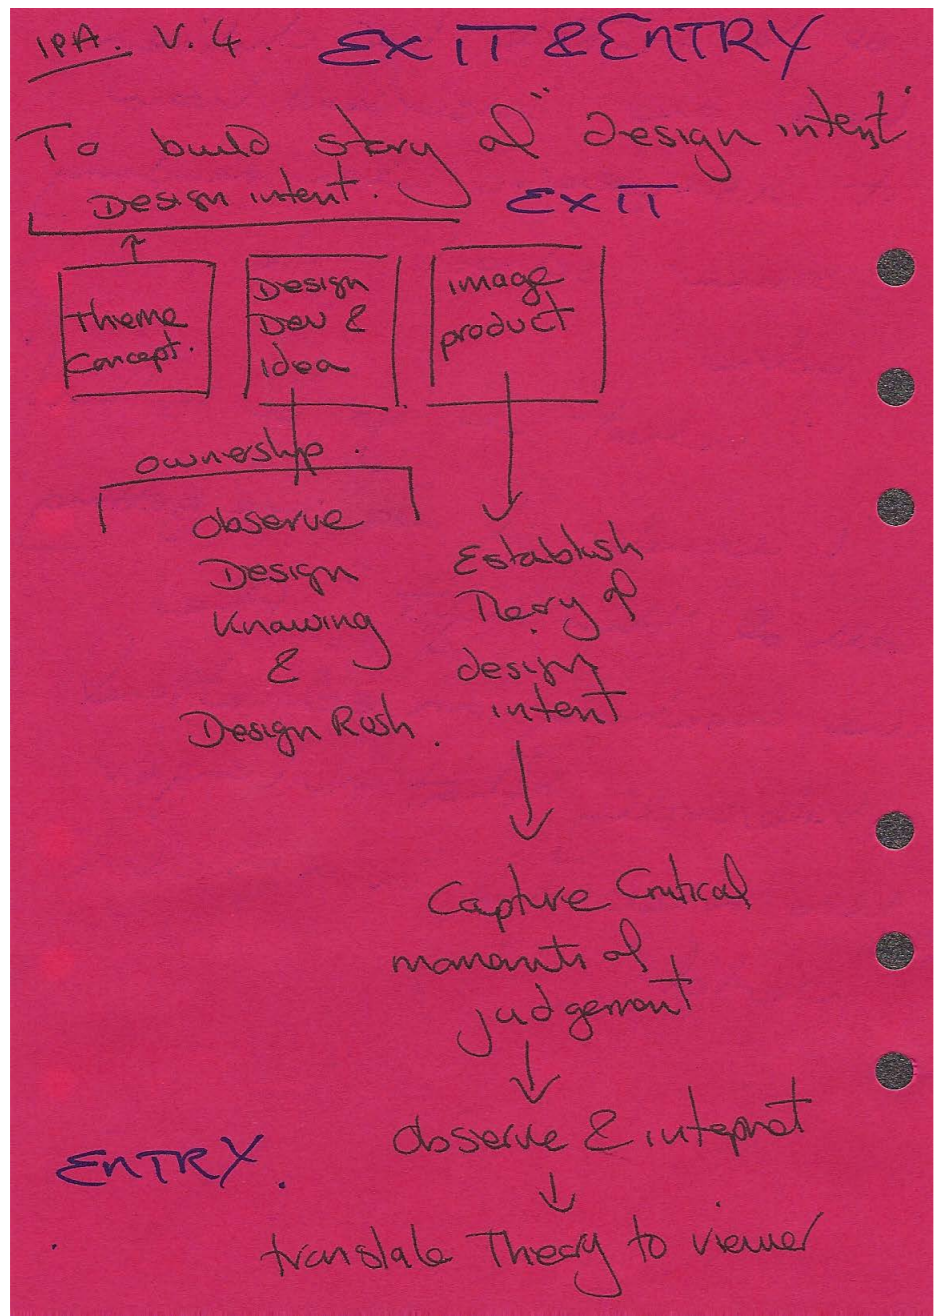 IPA. V.4. EXIT & ENTRY
To build story of "design intent"
Design intent. EXIT
Theme
Concept.
Design
Dev &
idea
image
product
ownership.
observe
Design
Knowing
&
Design Rush.
Establish
Theory of
design
intent
Capture Critical
moments of
judgement
observe & interpret
ENTRY.
translate Theory to viewer